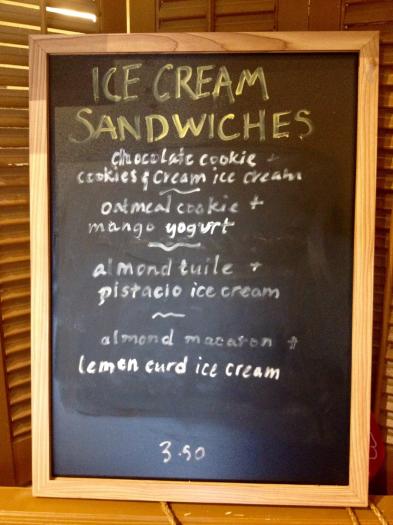 ICE CREAM
SANDWICHES
chocolate cookie +
cookies & cream ice cream
oatmeal cookie +
mango yogurt
almond tuile +
pistacio ice cream
almond macaron +
lemon curd ice cream
3.50